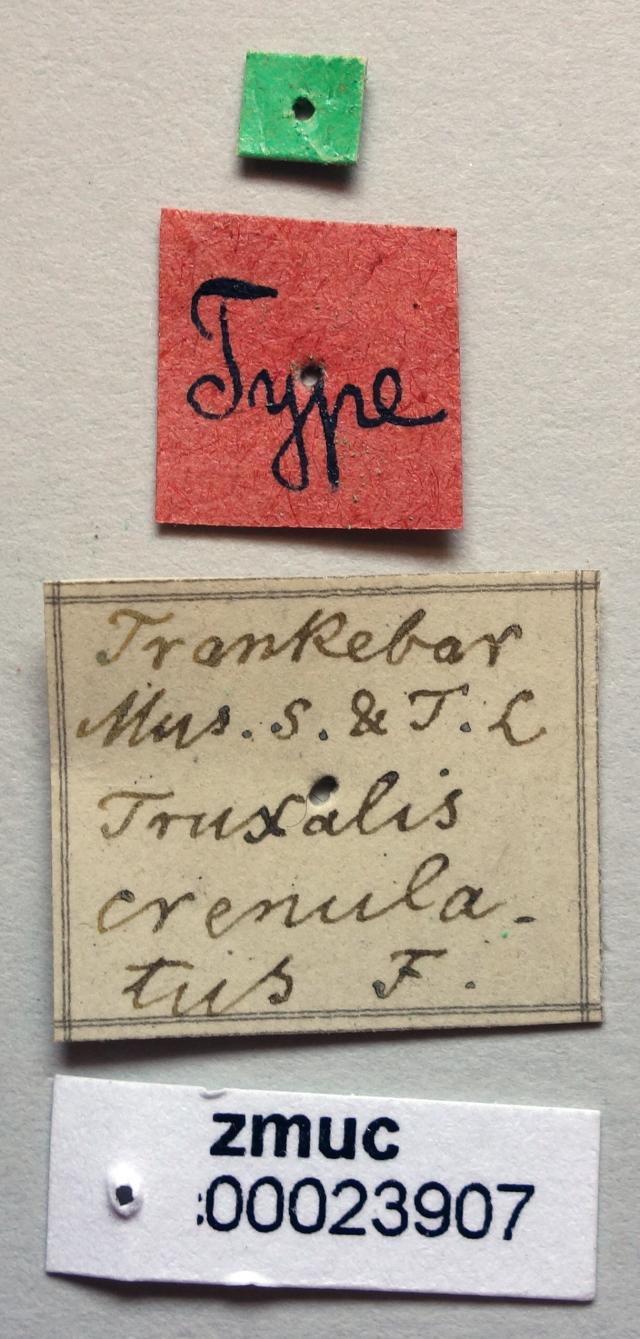 Type
Trankebar
Mus. S. & T. L
Truxalis
crenula-
tus F.
zmuc
:00023907